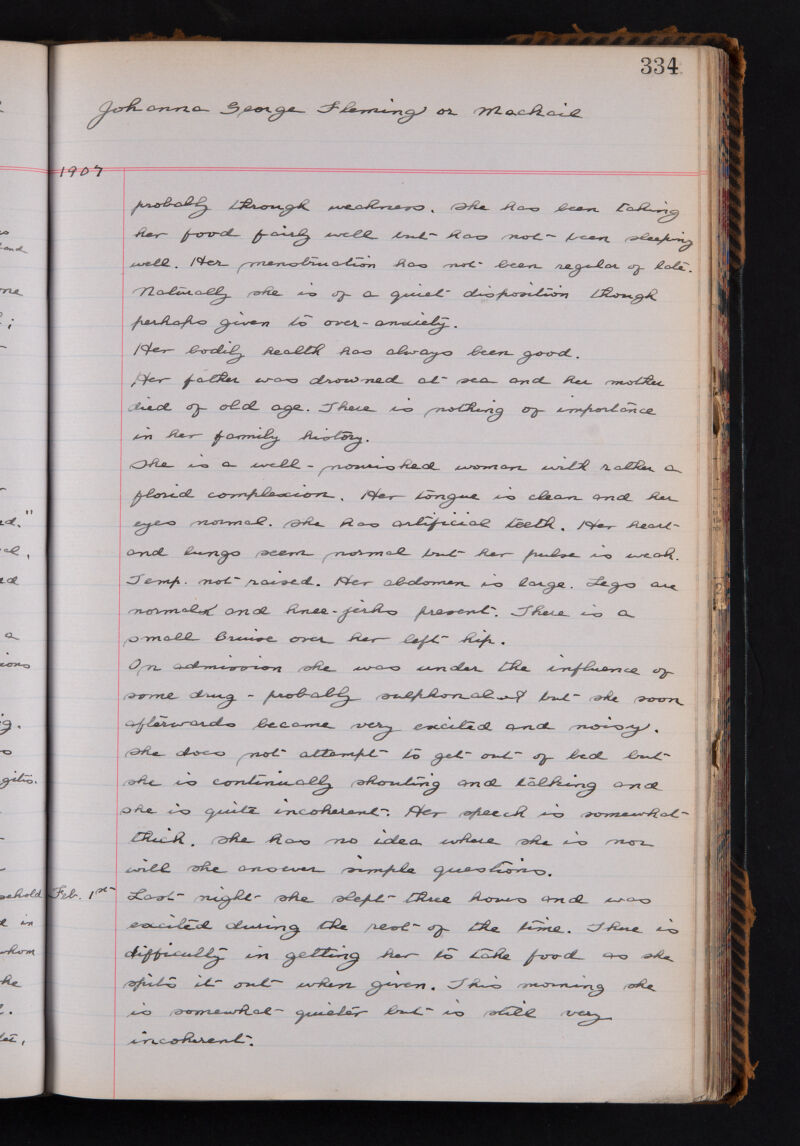 334
Johanna George Fleming or Mackail
1907
probably through weakness. She has been taking
her food fairly well but has not been sleeping
well. Her menstruation has not been regular of late.
Naturally she is of a quiet disposition though
perhaps given to over-anxiety.
Her bodily health has always been good.
Her father was drowned at sea and her mother
died of old age. There is nothing of importance
in her family history.
She is a well-nourished woman with rather a
florid complexion. Her tongue is clean and her
eyes normal. She has artificial teeth. Her heart
and lungs seem normal but her pulse is weak.
Temp. not raised. Her abdomen is large. Legs are
normal and knee-jerks present. There is a
small Bruise over her left hip.
On admission she was under the influence of
some drug - probably sulphonal but she soon
afterwards became very excited and noisy.
She does not attempt to get out of bed but
she is continually shouting and talking and
she is quite incoherent. Her speech is somewhat
thick. She has no idea where she is nor
will she answer simple questions.
Feb. 1st Last night she slept three hours and was
excited during the rest of the time. There is
difficulty in getting her to take food as she
spits it out when given. This morning she
is somewhat quieter but is still very
incoherent.